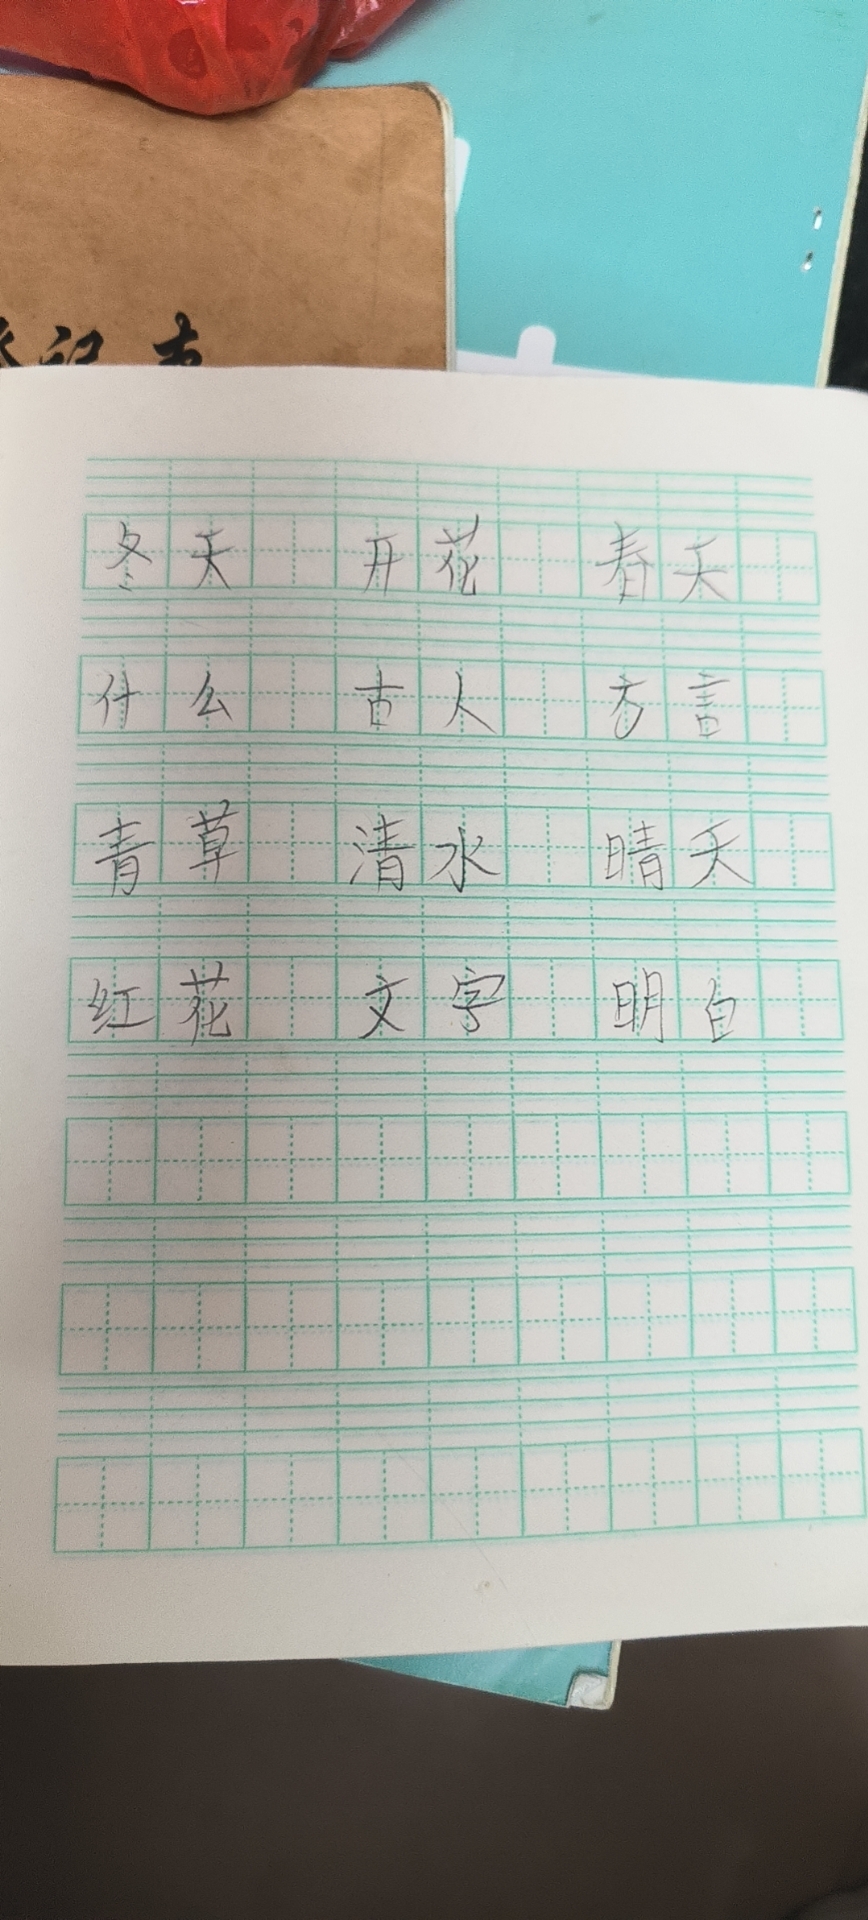 记 本
冬天 开花 春天
什么 古人 方言
青草 清水 晴天
红花 文字 明白